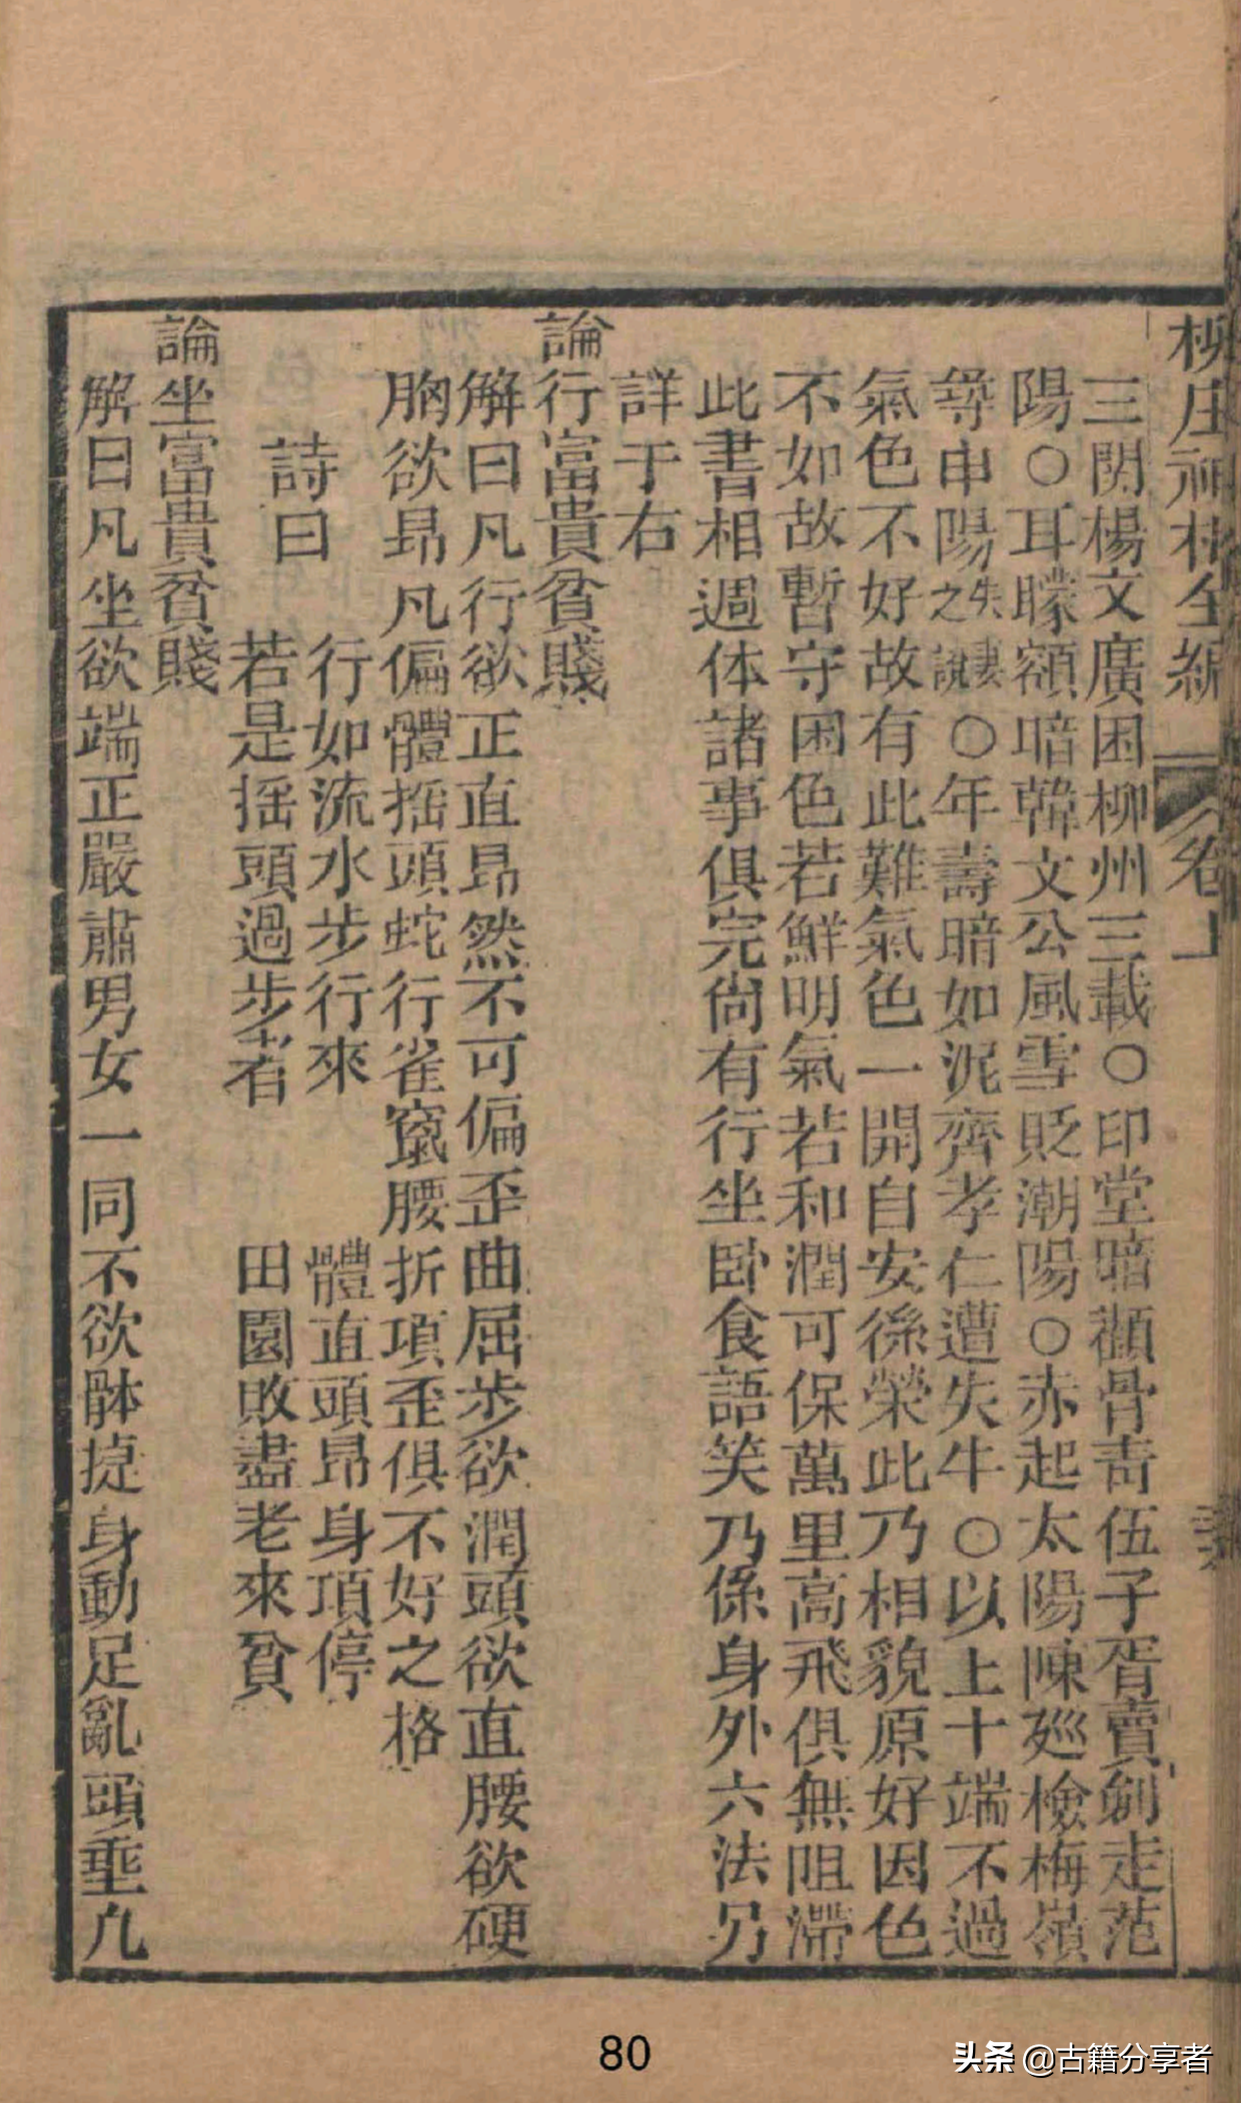 柳庄神相全編 卷上
三関楊文廣困柳州三載○印堂暗顴骨青伍子胥賣劍走范
陽○耳矇額暗韓文公風雪貶潮陽○赤起太陽陳廵檢梅嶺
尋申陽之失妻說○年壽暗如泥齊孝仁遭失牛○以上十端不過
氣色不好故有此難氣色一開自安係榮此乃相貌原好因色
不如故暫守困色若鮮明氣若和潤可保萬里高飛俱無阻滯
此書相週体諸事俱完尙有行坐卧食語笑乃係身外六法另
詳于右
論行富貴貧賤
解曰凡行欲正直昂然不可偏歪曲屈步欲潤頭欲直腰欲硬
胸欲昂凡偏體揺頭蛇行雀竄腰折項歪俱不好之格
詩曰
行如流水步行來 體直頭昂身項停
若是揺頭過步者 田園敗盡老來貧
論坐富貴貧賤
解曰凡坐欲端正嚴肅男女一同不欲躰㨗身動足亂頭垂凢
80
头条 @古籍分享者